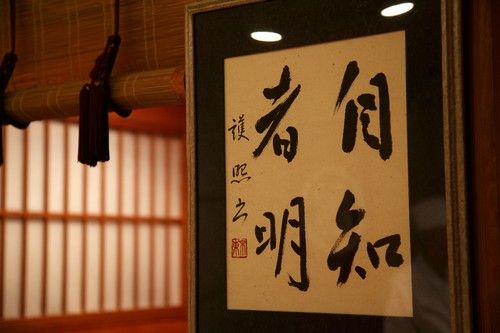 自知
者明
護熙書